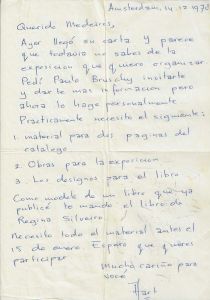 Amsterdam, 14.12.1976
Querido Medeiros,
Ayer llegó su carta y parece
que todavia no sabes de la
exposicion que quiero organizar
Pedí Paulo Bruschy invitarte
y darte mas informacion pero
ahora lo hago personalmente
Practicamente necesito el siguiente:
1. material para dos paginas del
catálogo
2. Obras para la exposicion
3. Los designos para el libro
Como modelo de un libro que ya
publicé te mando el libro de
Regina Silveira
Necesito todo el material antes el
15 de enero. Espero que quieres
participar
Mucho cariño para
voce